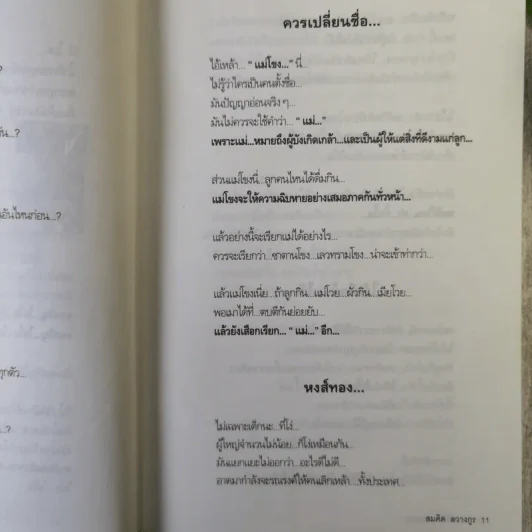 ควรเปลี่ยนชื่อ...
ไอ้เหล้า... “ แม่โขง...” นี่...
ไม่รู้ว่าใครเป็นคนตั้งชื่อ...
มันปัญญาอ่อนจริง ๆ...
มันไม่ควรจะใช้คำว่า... “ แม่...”
เพราะแม่...หมายถึงผู้บังเกิดเกล้า...และเป็นผู้ให้แต่สิ่งที่ดีงามแก่ลูก...
ส่วนแม่โขงนี่...ลูกคนไหนได้ดื่มกิน...
แม่โขงจะให้ความฉิบหายอย่างเสมอภาคกันทั่วหน้า...
แล้วอย่างนี้จะเรียกแม่ได้อย่างไร...
ควรจะเรียกว่า...ซาตานโขง...เลวทรามโขง...น่าจะเข้าท่ากว่า...
แล้วแม่โขงเนี่ย...ถ้าลูกกิน...แม่โวย...ผัวกิน...เมียโวย...
พอเมาได้ที่...ตบตีกันย่อยยับ...
แล้วยังเสือกเรียก... “ แม่...” อีก...
หงส์ทอง...
ไม่เฉพาะเด็กนะ...ที่โง่...
ผู้ใหญ่จำนวนไม่น้อย...ก็โง่เหมือนกัน...
มันแยกแยะไม่ออกว่า...อะไรดีไม่ดี...
อาตมากำลังจะรณรงค์ให้คนเลิกเหล้า...ทั้งประเทศ...
สมคิด ลวางกูร 11
น...?
อันไหนก่อน...?
ทุกตัว...
...?